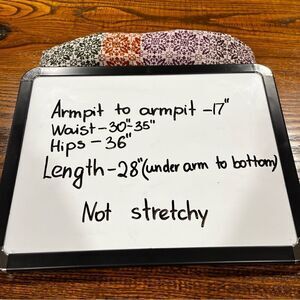 Armpit to armpit - 17"
Waist - 30"-35"
Hips - 36"
Length - 28" (under arm to bottom)
Not stretchy